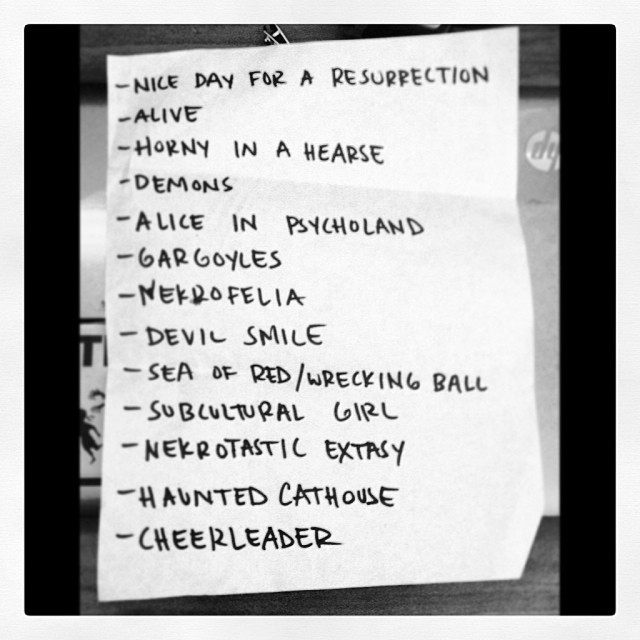 -NICE DAY FOR A RESURRECTION
-ALIVE
-HORNY IN A HEARSE
-DEMONS
-ALICE IN PSYCHOLAND
-GARGOYLES
-NEKROFELIA
-DEVIL SMILE
-SEA OF RED/WRECKING BALL
-SUBCULTURAL GIRL
-NEKROTASTIC EXTASY
-HAUNTED CATHOUSE
-CHEERLEADER
hp